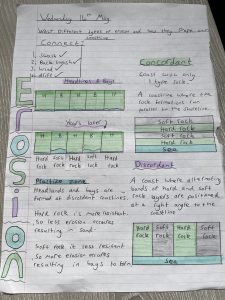 Wednesday 14th May
What different types of erosion and how they shape our coastline
Connect:
1. Swash ✓
2. Back wash ✓
3. Wind ✓
4. drift ✓
Erosion
Headlands & Bays
H B H B H
Years later
H B H B H
Hard rock
Soft rock
Hard rock
Soft rock
Hard rock
Headlands and bays are formed at discordant coastlines.
Hard rock is more resistant so less erosion occures resulting in
Soft rock is less resistant so more erosion occures resulting in bays to form
Concordant
Coast with only 1 type rock
A coastline where the rock formations run parallel to the shoreline.
Soft rock
Hard rock
Soft rock
Hard rock
Sea
Discordant
A coast where alternating bands of hard and soft rock layers are positioned at a right angle to the coastline
Hard rock
Soft rock
Hard rock
Soft rock
Sea